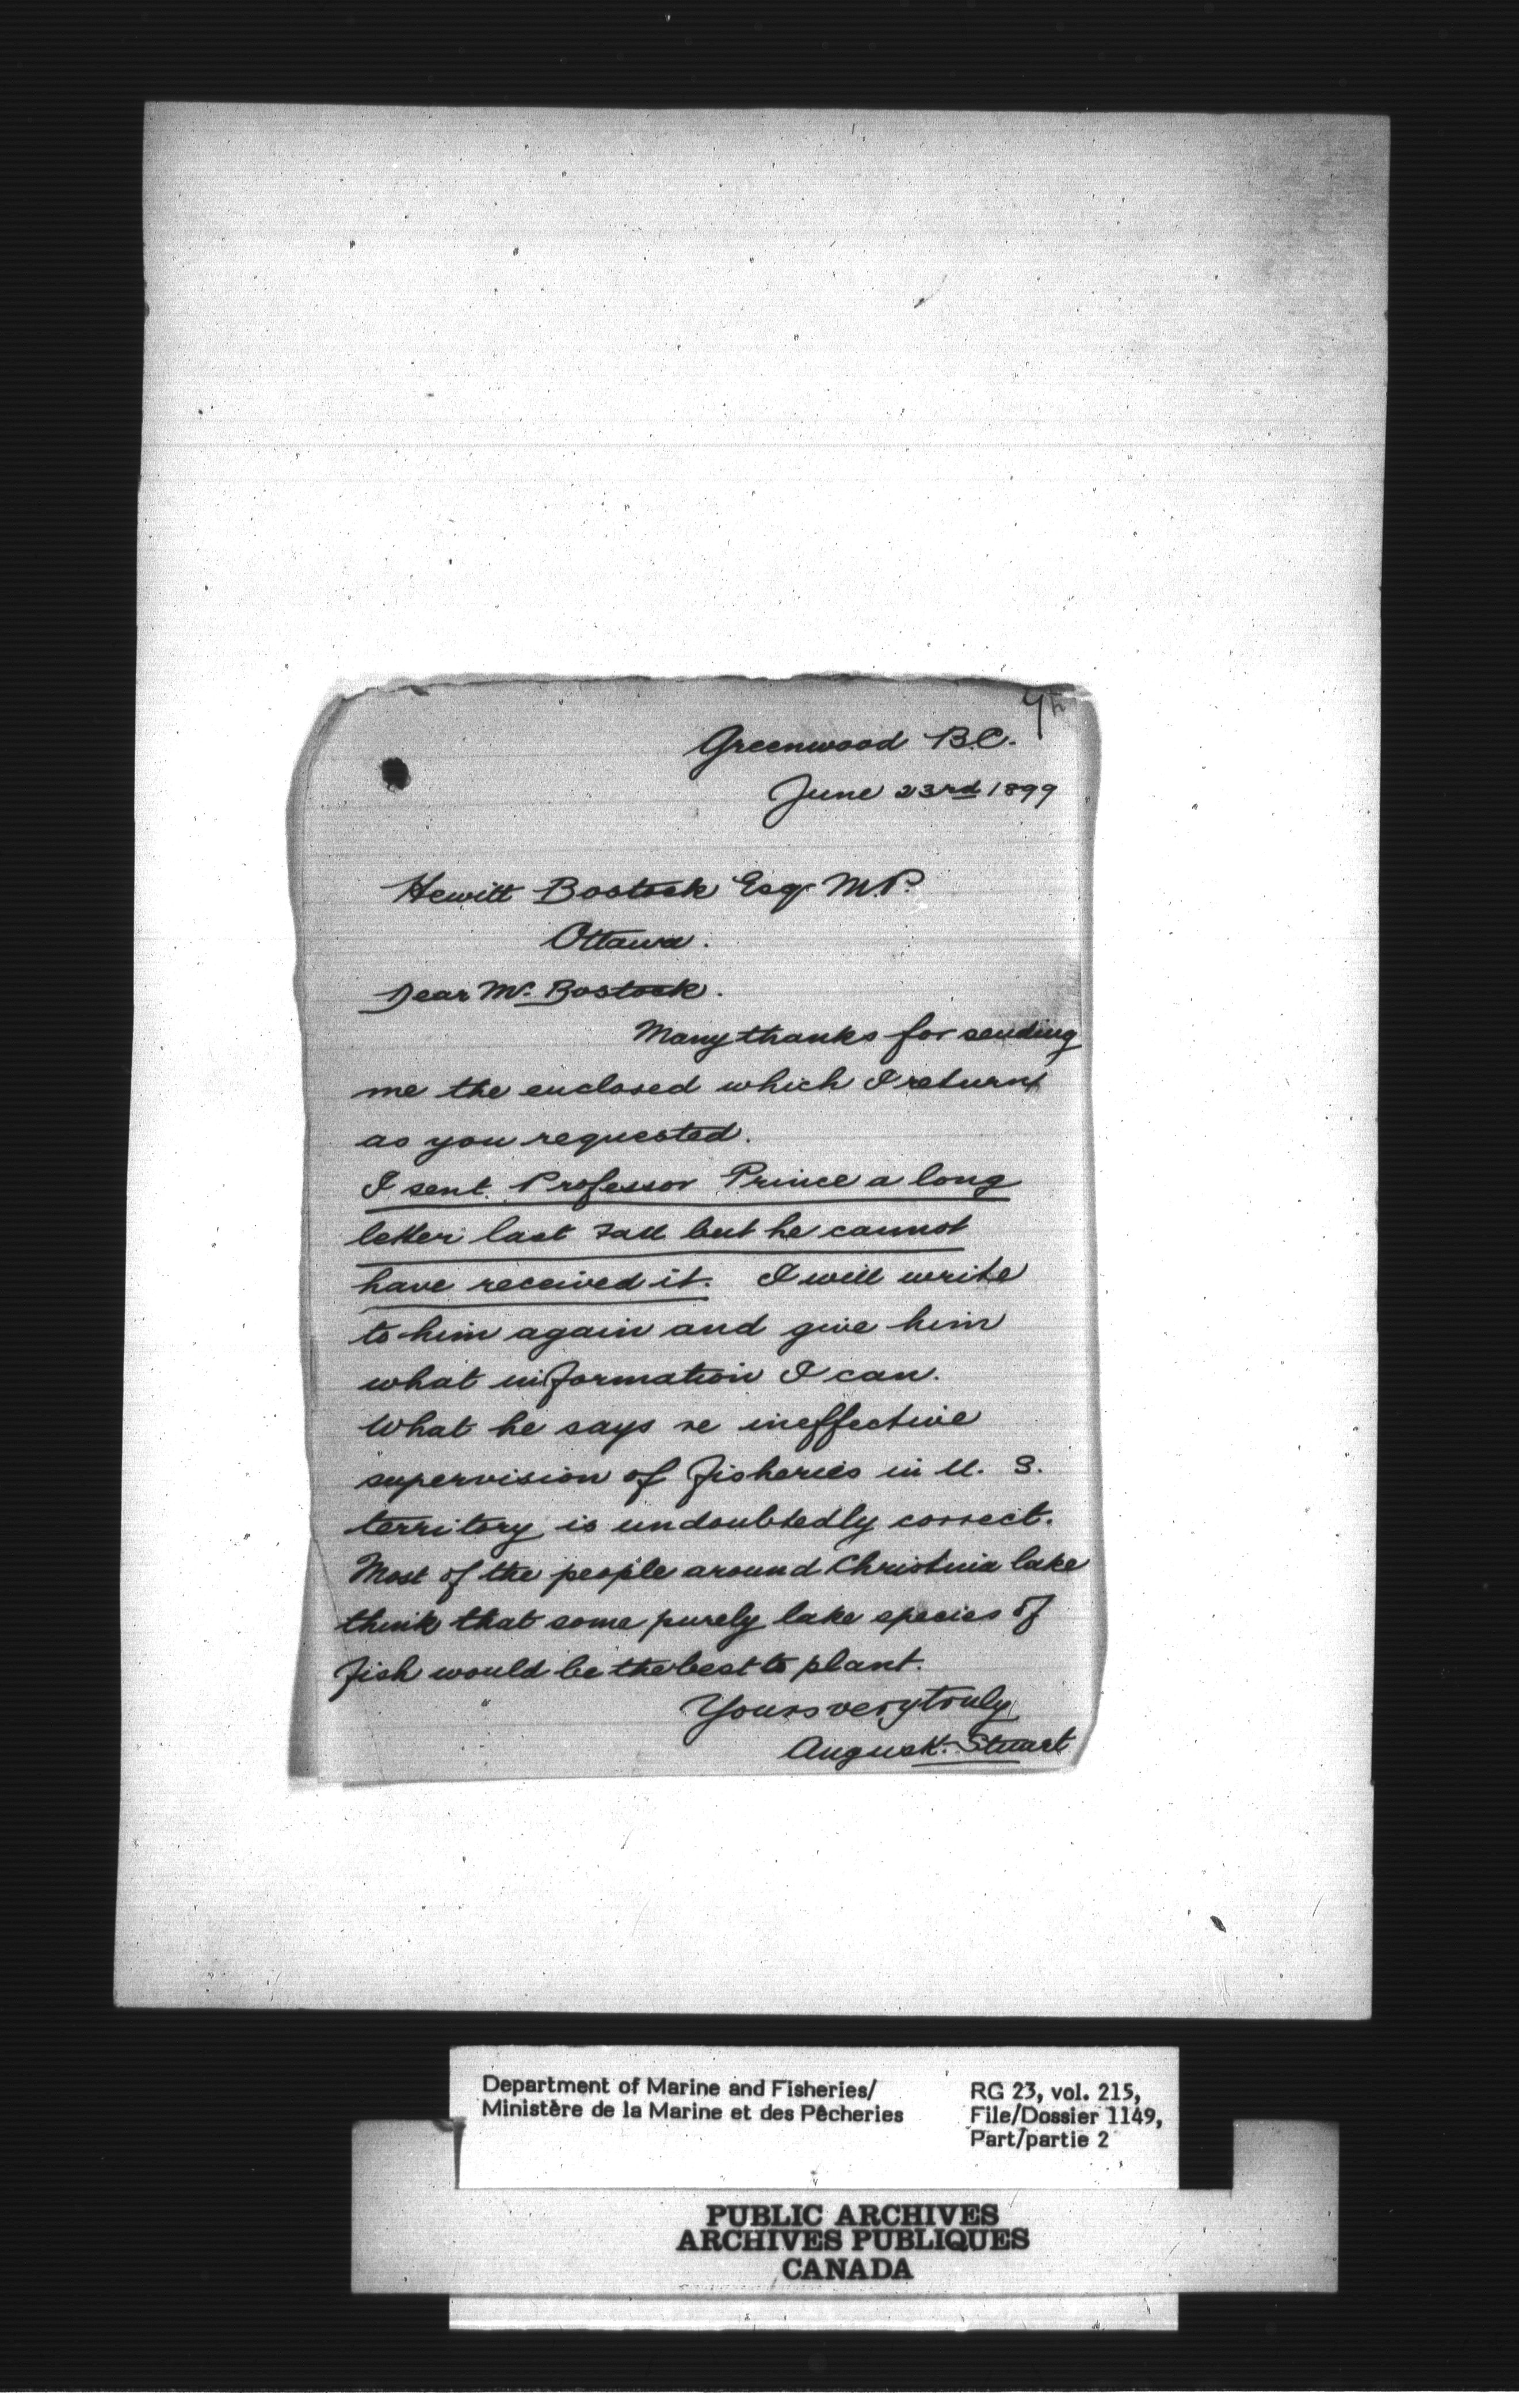 Greenwood B.C.
June 23rd 1899
Hewitt Bostock Esqr M.P.
Ottawa.
Dear Mr. Bostock.
Many thanks for sending
me the enclosed which I return
as you requested.
I sent Professor Prince a long
letter last Fall but he cannot
have received it. I will write
to him again and give him
what information I can.
What he says re ineffective
supervision of fisheries in U. S.
territory is undoubtedly correct.
Most of the people around Christina lake
think that some purely lake species of
fish would be the best to plant.
Yours very truly
Angus K. Stuart
Department of Marine and Fisheries/
Ministère de la Marine et des Pêcheries
RG 23, vol. 215,
File/Dossier 1149,
Part/partie 2
PUBLIC ARCHIVES
ARCHIVES PUBLIQUES
CANADA